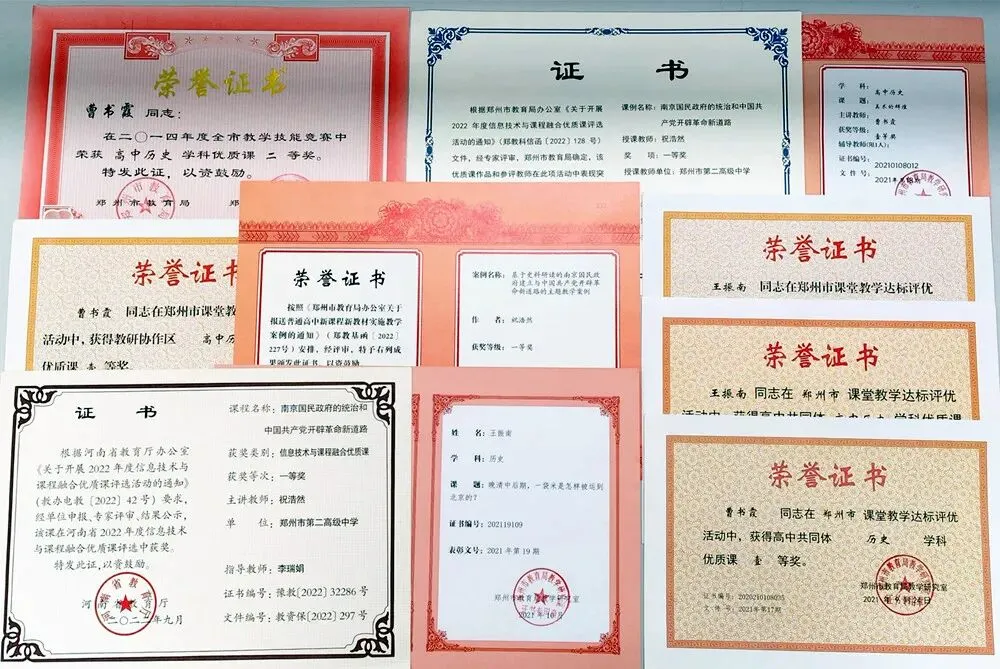 荣誉证书
曹书霞 同志:
在二〇一四年度全市教学技能竞赛中
荣获 高中历史 学科优质课 二 等奖。
特发此证,以资鼓励。
郑州市教育局
证 书
根据郑州市教育局办公室《关于开展
2022 年度信息技术与课程融合优质课评选
活动的通知》(郑教科信函〔2022〕128 号)
文件,经专家评审,郑州市教育局确定,该
优质课作品和参评教师在此项活动中表现突
课例名称:南京国民政府的统治和中国共
产党开辟革命新道路
授课教师:祝浩然
奖 项:一等奖
授课教师单位:郑州市第二高级中学
学 科:高中历史
课 题:
主讲教师:曹书霞
获奖等级:壹等奖
辅导教师(限1人):
证书编号:20210108012
文 件 号:
荣誉证书
曹书霞 同志在郑州市课堂教
活动中,获得教研协作区 高中历
优质课 壹 等奖。
荣誉证书
按照《郑州市教育局办公室关于
报送普通高中新课程新教材实施教学
案例的通知》(郑教基函〔2022〕
227号)安排,经评审,特予右列成
果颁发此证书,以资鼓励。
案例名称:基于史料研读的南京国民政
府建立与中国共产党开辟革
命新道路的主题教学案例
作 者:祝浩然
获奖等级:一等奖
荣誉证书
王振南 同志在郑州市课堂教学达标评优
荣誉证书
王振南 同志在 郑州市 课堂教学达标评优
活动中,获得高中共同体
学科优质课
证 书
根据河南省教育厅办公室
《关于开展 2022 年度信息技术与
课程融合优质课评选活动的通知》
(教办电教〔2022〕42 号)要求,
经单位申报、专家评审、结果公示,
该课在河南省 2022 年度信息技术
与课程融合优质课评选中获奖。
特发此证,以资鼓励。
河南省教育厅
二〇二二年九月
课程名称:南京国民政府的统治和
中国共产党开辟革命新道路
获奖类别:信息技术与课程融合优质课
获奖等次:一等奖
主讲教师:祝浩然
单 位:郑州市第二高级中学
指导教师:李瑞娟
证书编号:豫教[2022] 32286 号
文件编号:教资保[2022] 297 号
姓 名:王振南
学 科:历史
课 题:晚清中后期,一袋米是怎样被运到
北京的?
证书编号:202119109
表彰文号:2021 年第 19 期
郑州市教育局教学研究室
荣誉证书
曹书霞 同志在 郑州市 课堂教学达标评优
活动中,获得高中共同体 历史 学科
优质课 壹 等奖。
证书编号:2020210108035
文 件 号:2021年第17期
郑州市教育局教学研究室